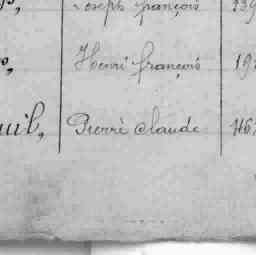 Joseph françois 239
Henri françois 19
uil, Pierre Claude 467